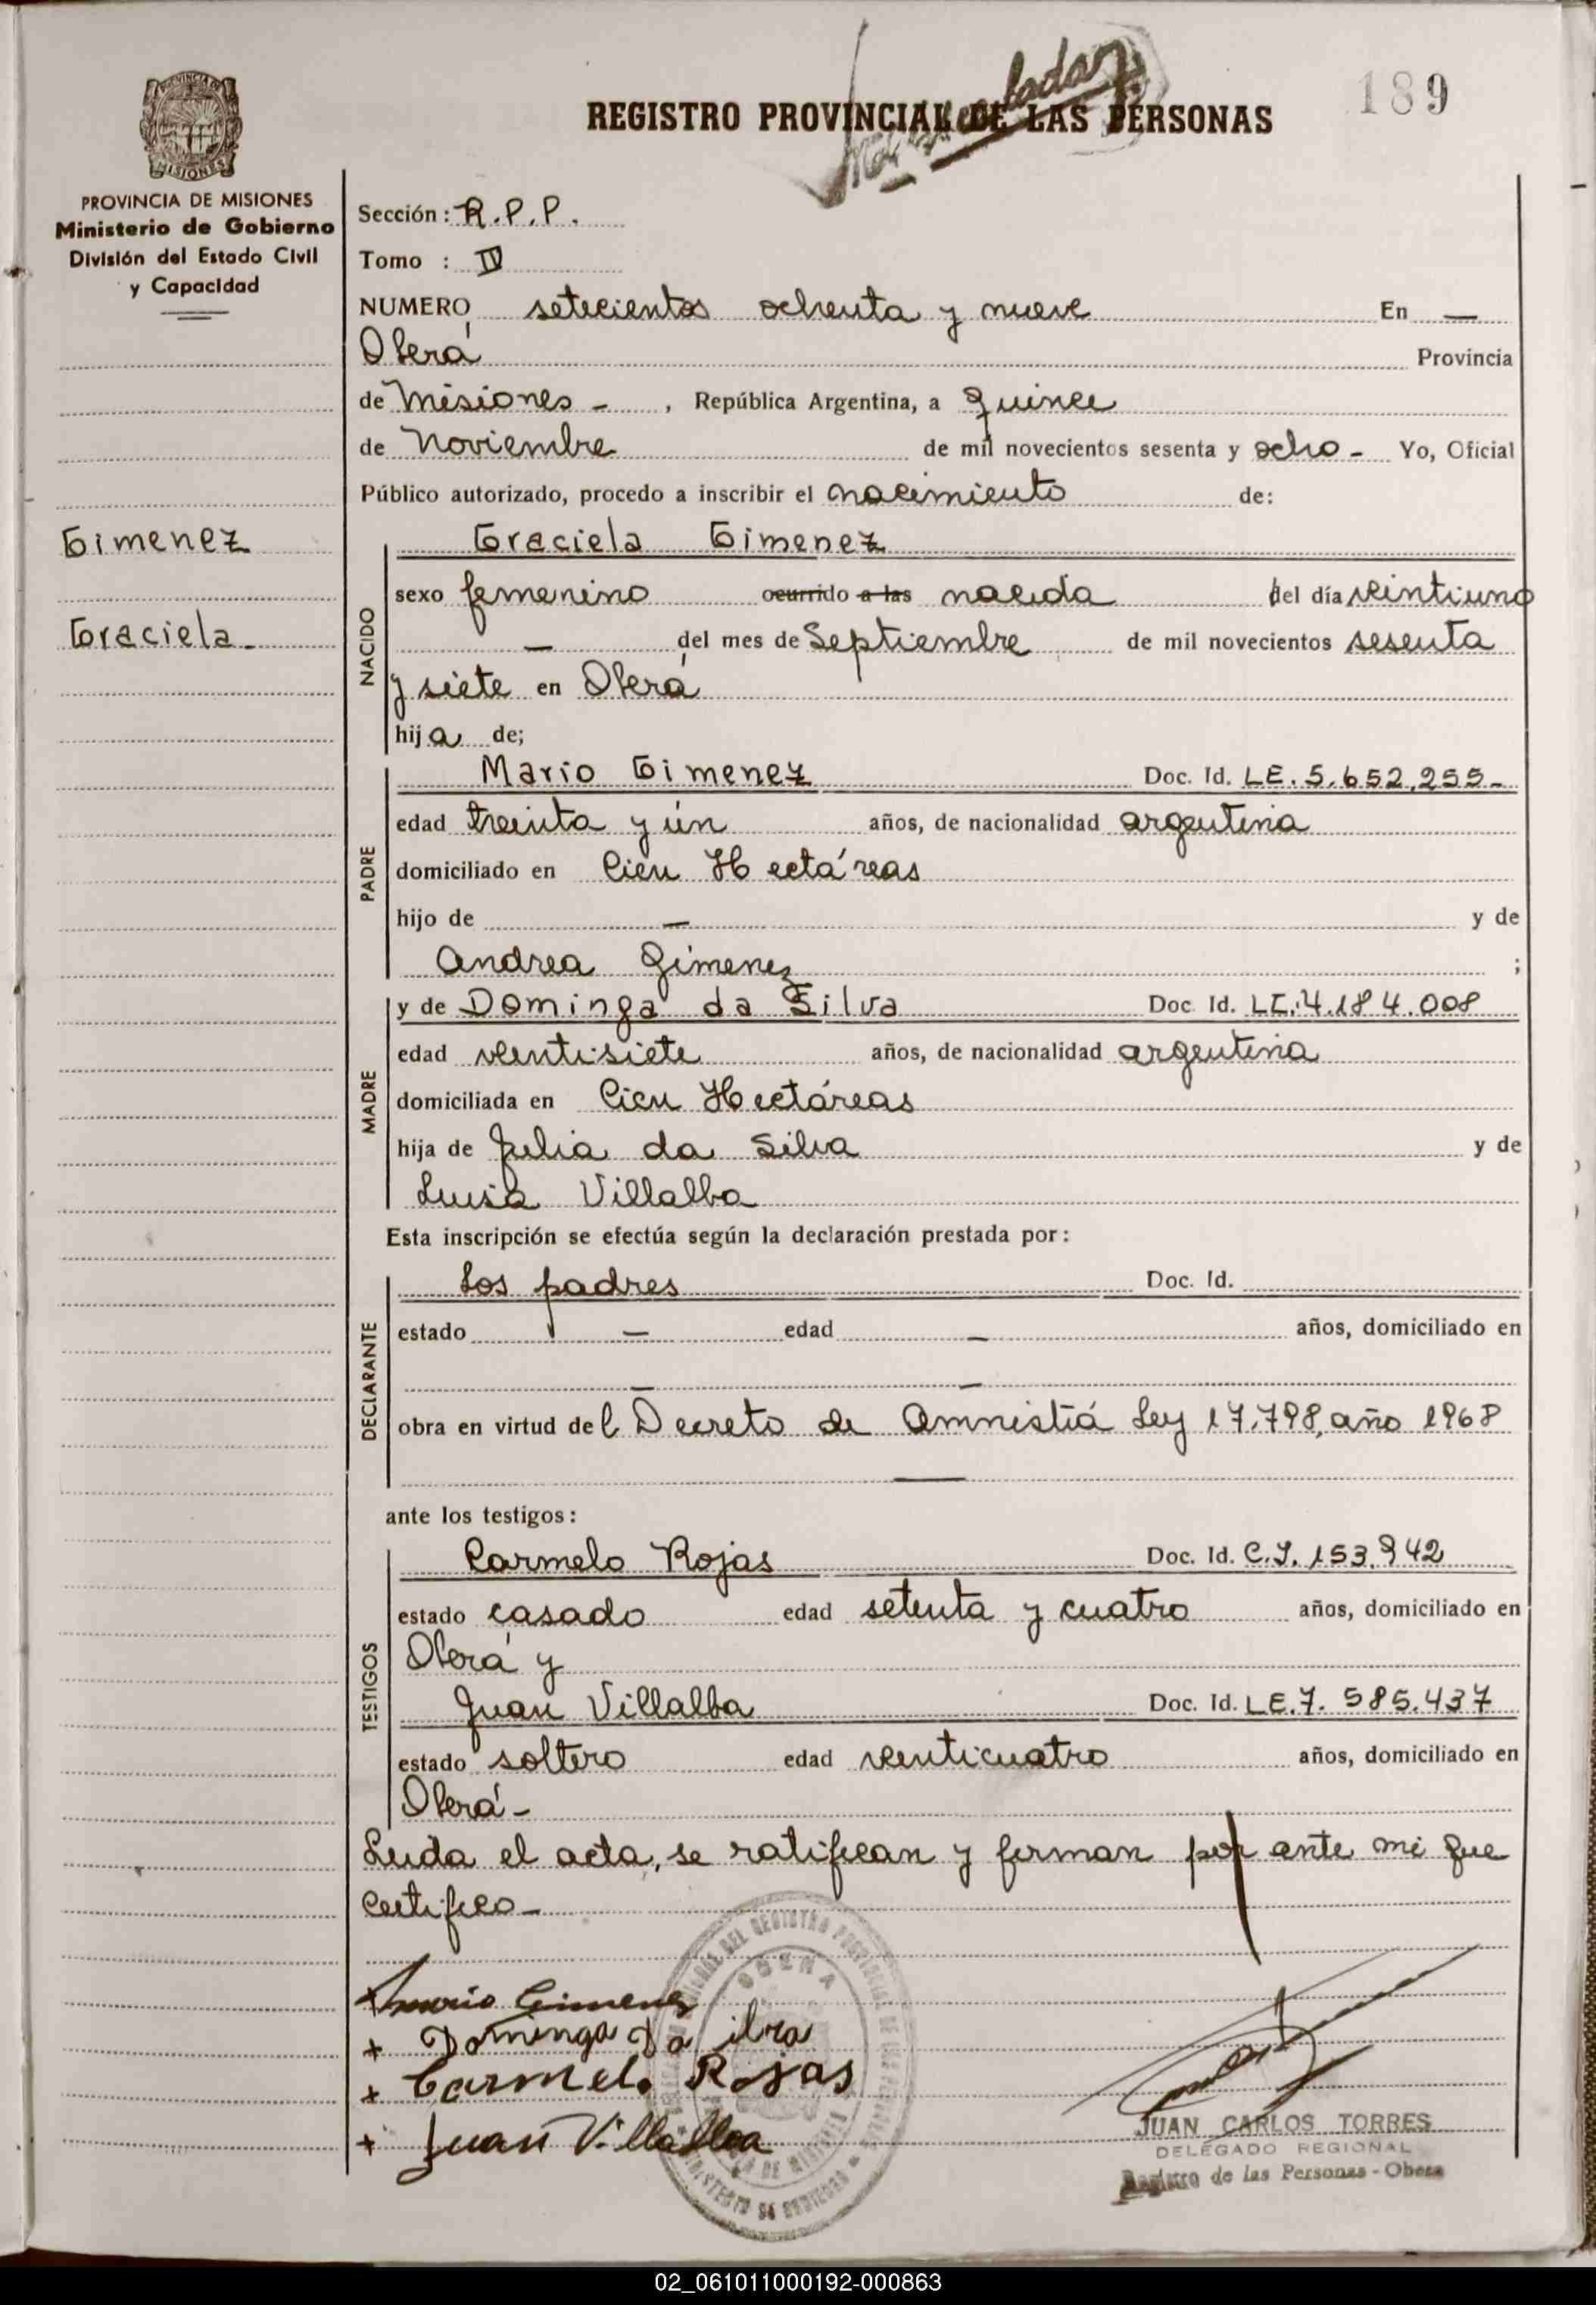 189
REGISTRO PROVINCIAL DE LAS PERSONAS
PROVINCIA DE MISIONES
Ministerio de Gobierno
División del Estado Civil
y Capacidad
Sección: R.P.P.
Tomo : IV
NUMERO setecientos ochenta y nueve En —
Oberá Provincia
de Misiones - , República Argentina, a Quince
de Noviembre de mil novecientos sesenta y ocho - Yo, Oficial
Público autorizado, procedo a inscribir el nacimiento de:
Gimenez
Graciela -
NACIDO
Graciela Gimenez
sexo femenino ocurrido a las nacida del día veintiuno
— del mes de Septiembre de mil novecientos sesenta
y siete en Oberá
hija de;
PADRE
Mario Gimenez Doc. Id. LE. 5.652.255-
edad treinta y ún años, de nacionalidad argentina
domiciliado en Cien Hectáreas
hijo de — y de
Andrea Gimenez ;
MADRE
y de Dominga da Silva Doc. Id. LC. 4.184.008
edad veintisiete años, de nacionalidad argentina
domiciliada en Cien Hectáreas
hija de Julia da Silva y de
Luisa Villalba
Esta inscripción se efectúa según la declaración prestada por:
DECLARANTE
Los padres Doc. Id.
estado — edad — años, domiciliado en
— —
obra en virtud del Decreto de Amnistiá Ley 17.798, año 1968
—
ante los testigos:
TESTIGOS
Carmelo Rojas Doc. Id. C.I. 153.942
estado casado edad setenta y cuatro años, domiciliado en
Oberá y
Juan Villalba Doc. Id. LE. 7.585.437
estado soltero edad venticuatro años, domiciliado en
Oberá -
Leida el acta, se ratifican y firman por ante mi que
certifico -
+ Mario Gimenez
+ Dominga Da ilva
+ Carmelo Rojas
+ Juan Villalba
JUAN CARLOS TORRES
DELEGADO REGIONAL
Registro de las Personas - Obera
02_061011000192-000863